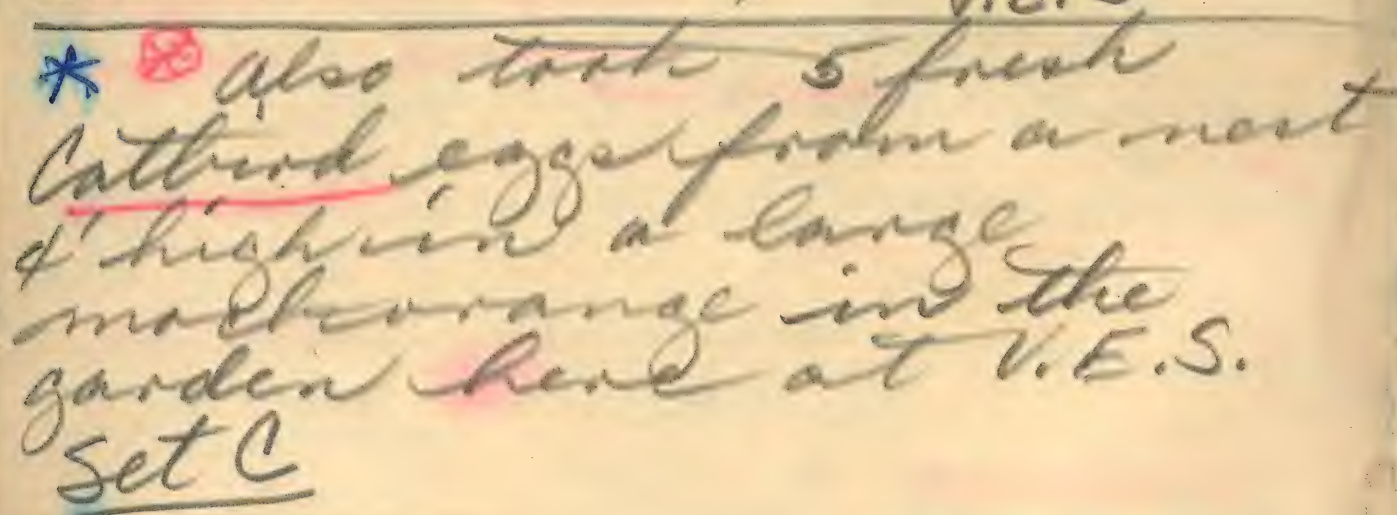 * Also took 5 fresh
Catbird eggs from a nest
high in a large
mockorange in the
garden here at V.E.S.
Set C